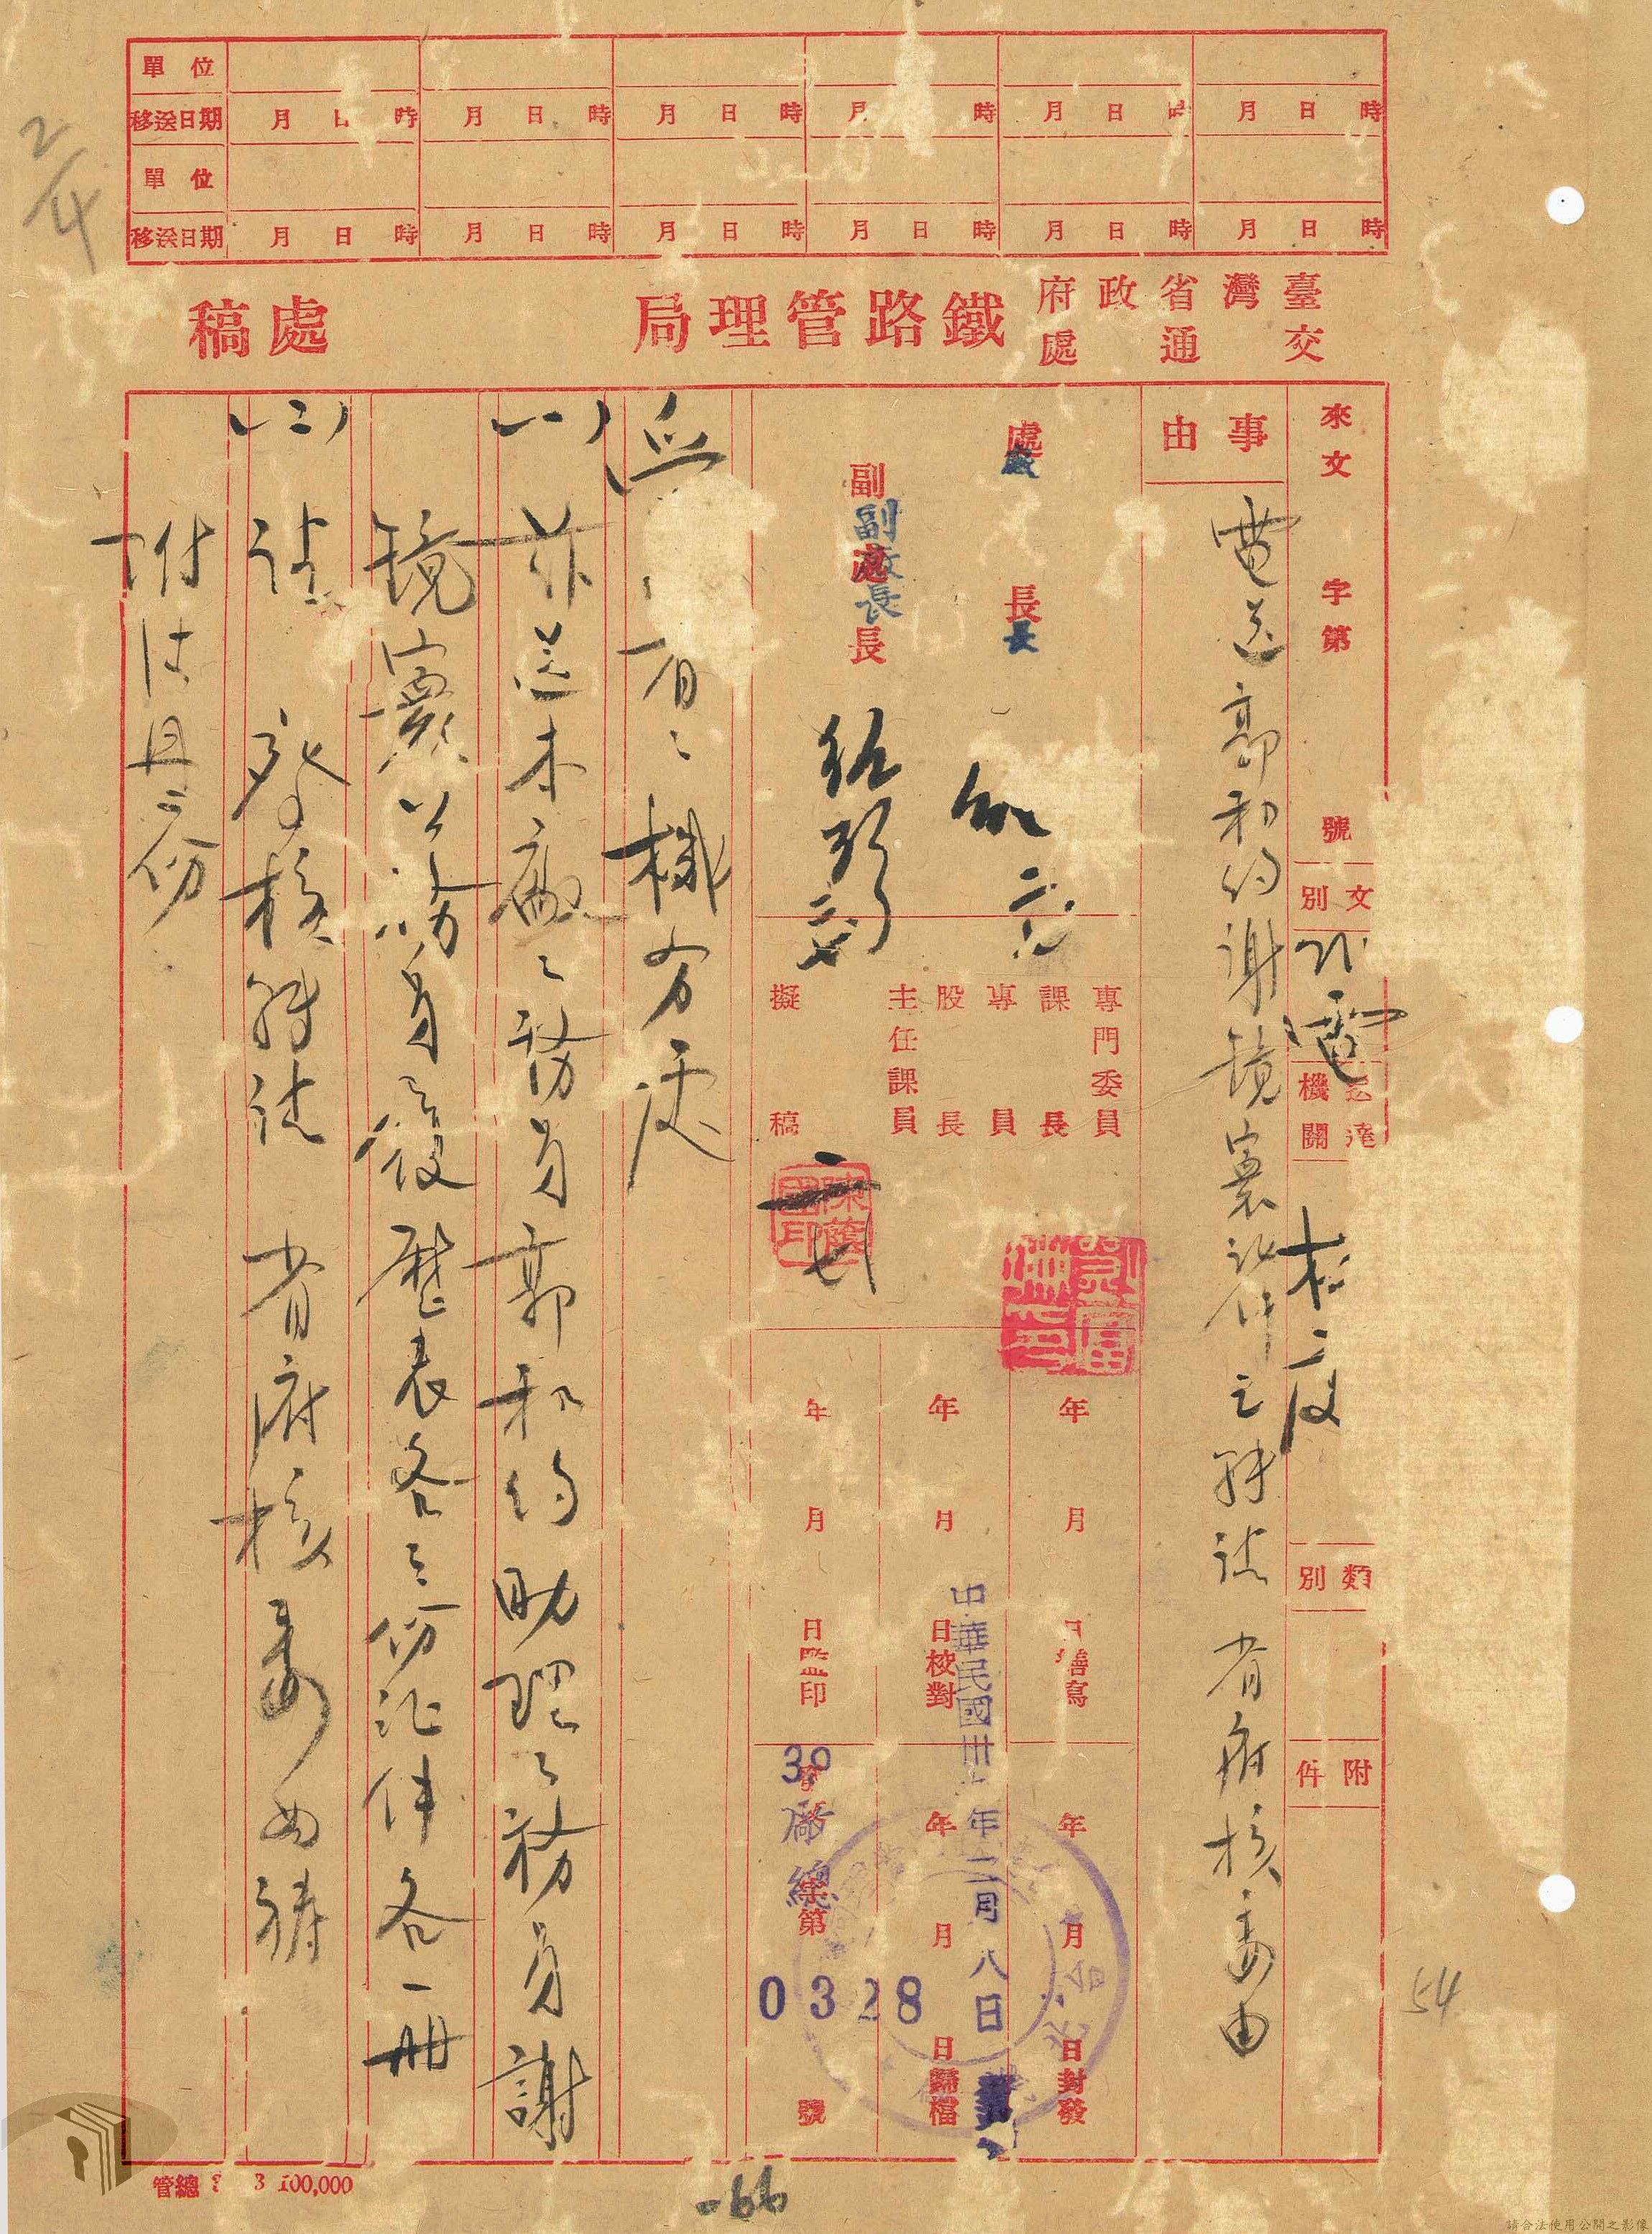 單位
移送日期 月 日 時 月 日 時 月 日 時 月 時 月 日 時 月 日 時
單位
移送日期 月 日 時 月 日 時 月 日 時 月 日 時 月 日 時 月 日 時
臺灣省政府
交通處
鐵路管理局
處稿
來文 字第 號
文別 代電
送達機關
類別
附件
事由
電送郭和約謝鏡寰証件之轉請 省府核委由
處長
廠長
副處長
副廠長
專門委員
課長
專員
股長
主任課員
擬稿
年 月 日繕寫
年 月 日校對
年 月 日監印
年 月 日封發
年 月 日歸檔
字第 號
中華民國卅 年二月八日
39
廠總
0328
機務處
(一)茲送本廠工務員郭和約助理工務員謝
鏡寰公務員履歷表各三份証件各一冊
(二)請 察核轉請 省府核委為禱
附件
2/4
54
-66
管總 3 100,000
請合法使用公開之影像